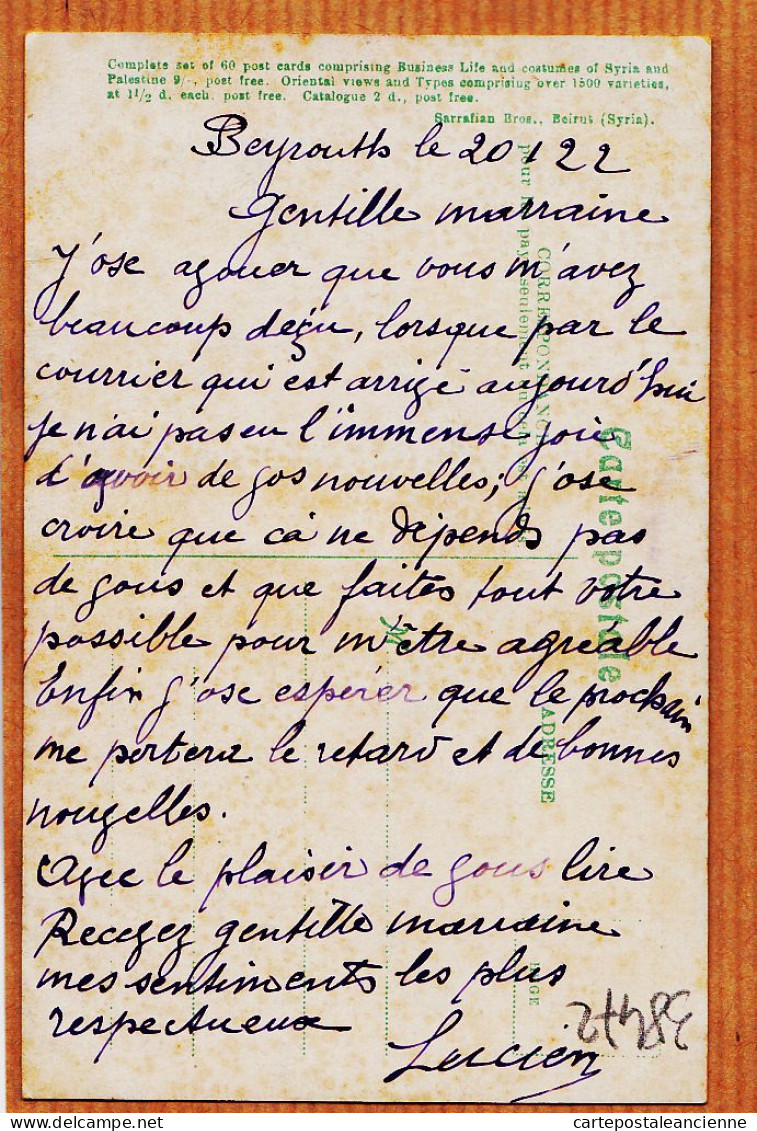 Complete set of 60 post cards comprising Business Life and costumes of Syria and
Palestine 9/-, post free. Oriental views and Types comprising over 1500 varieties,
at 1 1/2 d. each. post free. Catalogue 2 d., post free.
Sarrafian Bros., Beirut (Syria).
Beyrouth le 20 1 22
Gentille marraine
J'ose avouer que vous m'avez
beaucoup déçu, lorsque par le
courrier qui est arrivé aujourd'hui
je n'ai pas eu l'immense joie
d'avoir de vos nouvelles; j'ose
croire que cà ne dépends pas
de vous et que faites tout votre
possible pour m'être agréable
Enfin j'ose espérer que le prochain
me portera le retard et de bonnes
nouvelles.
Avec le plaisir de vous lire
Recevez gentille marraine
mes sentiments les plus
respectueux
Lucien
CORRESPONDANCE
Carte postale
ADRESSE
38472
delcampe.net
cartepostaleancienne